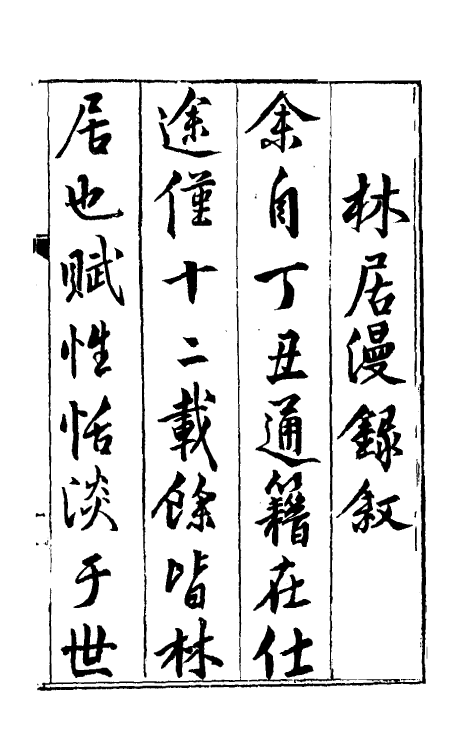 林居漫錄叙
余自丁丑通籍在仕
途僅十二載餘皆林
居也賦性恬淡于世